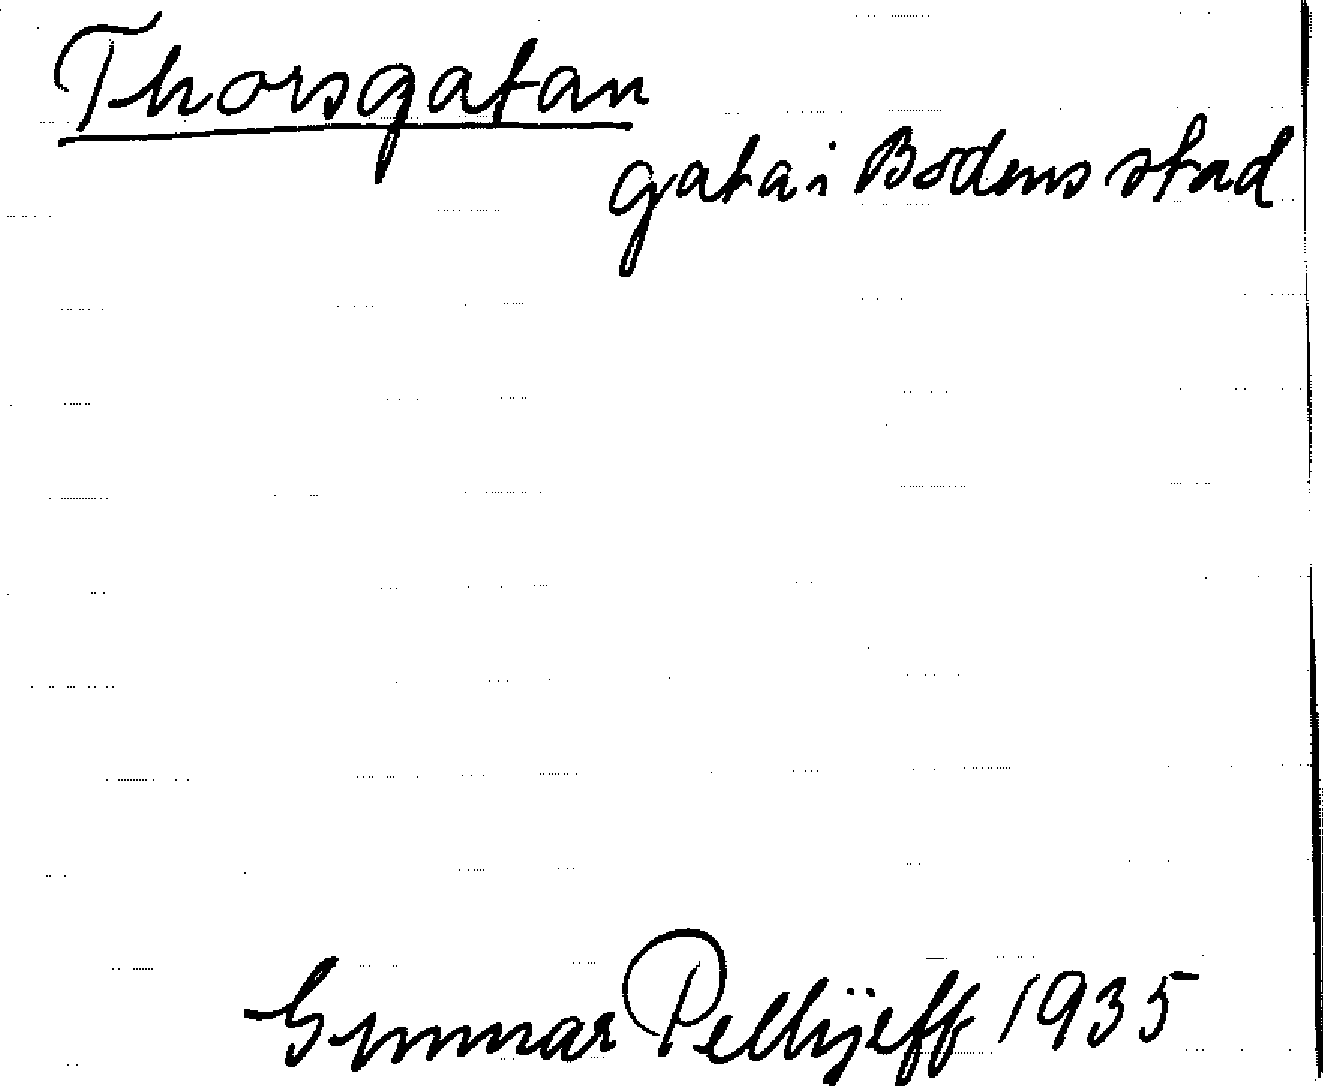 Thorsgatan
gata i Bodens stad
Gunnar Pellijeff 1935